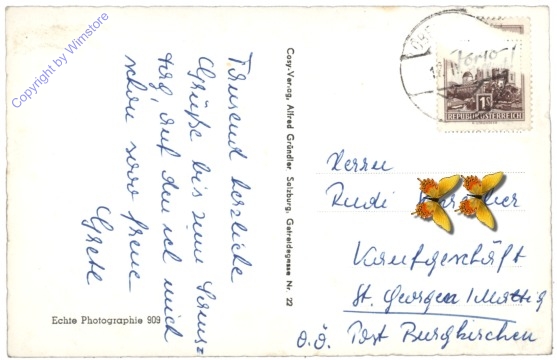 Copyright by Wimstore
Tausend herzliche
Grüße bis zum Sams=
tag, auf den ich mich
schon sooo freue
Gretl
Echte Photographie 909
Cosy-Verlag, Alfred Gründler Salzburg, Getreidegasse Nr. 22
1S
REPUBLIK ÖSTERREICH
Herrn
Rudi
Kaufgeschäft
St. Georgen / Mattig
o.ö. Post Burgkirchen